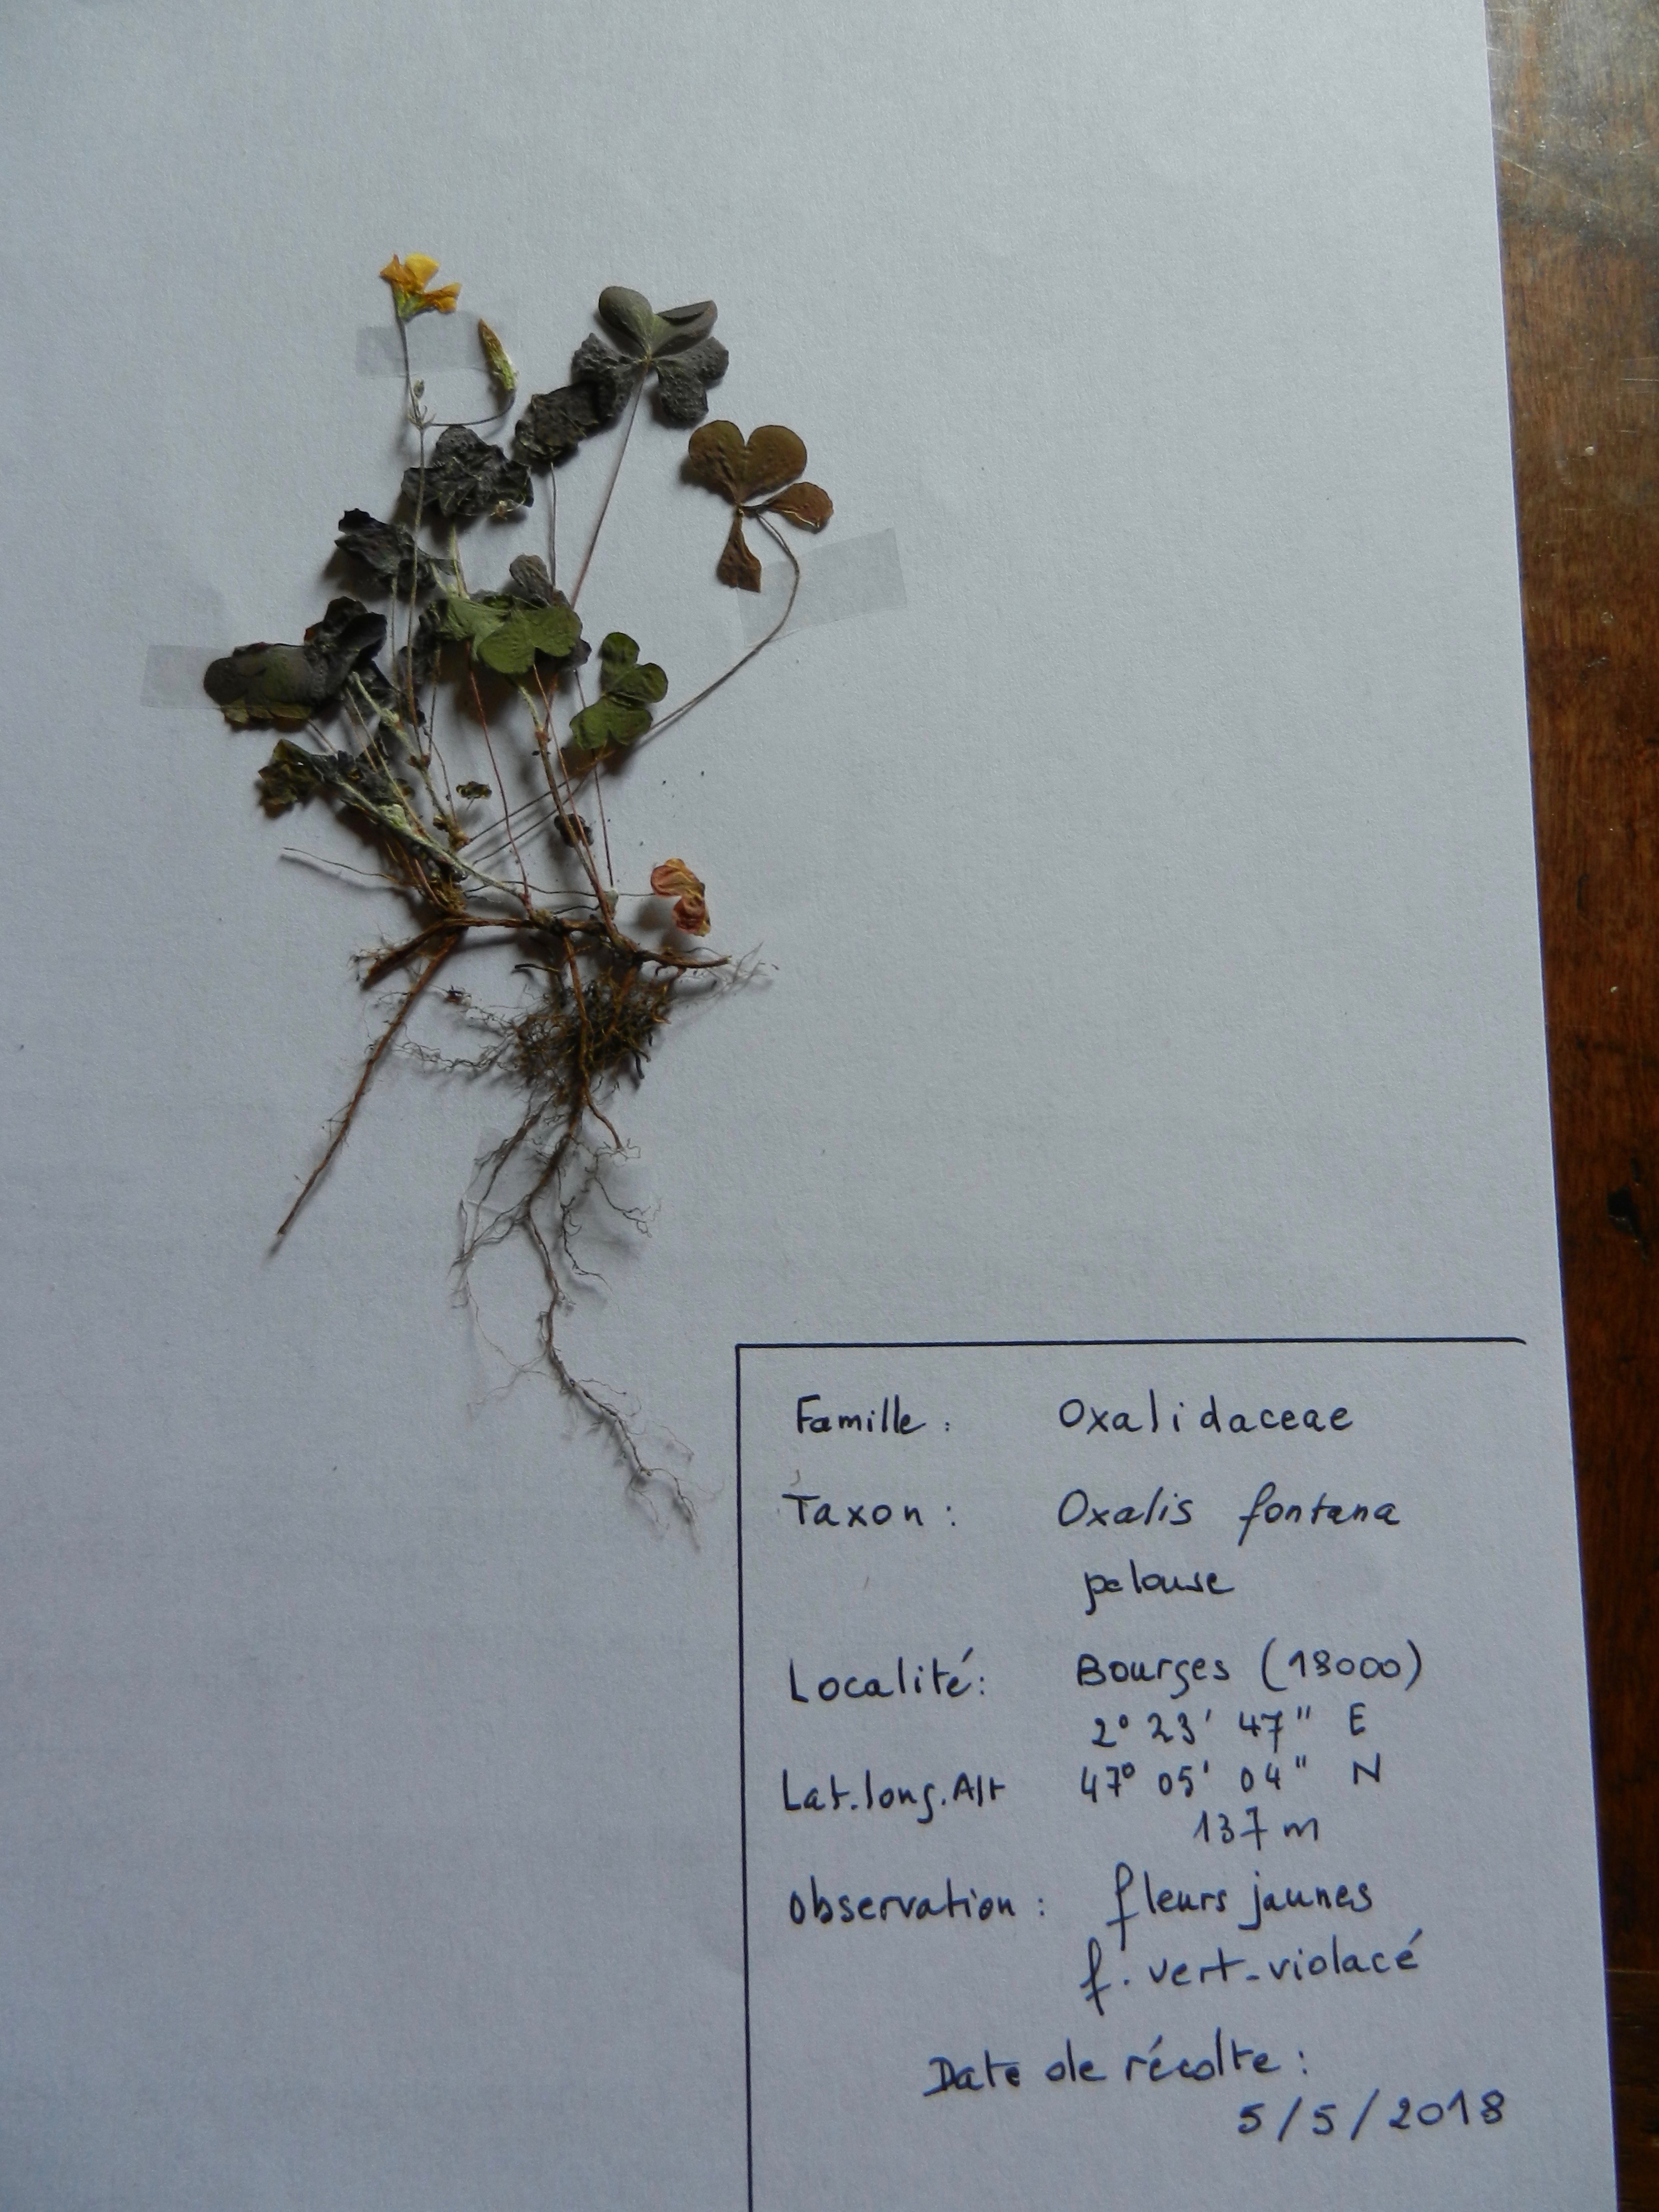 Famille : Oxalidaceae
Taxon : Oxalis fontana
pelouse
Localité : Bourges (18000)
2° 23' 47" E
Lat.long.Alt 47° 05' 04" N
137 m
Observation : fleurs jaunes
f. vert-violacé
Date de récolte :
5/5/2018